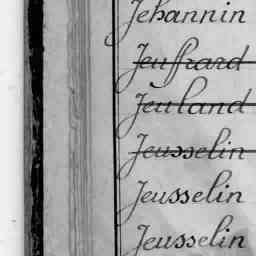 Jehannin
Jeuffrard
Jeuland
Jeusselin
Jeusselin
Jeusselin